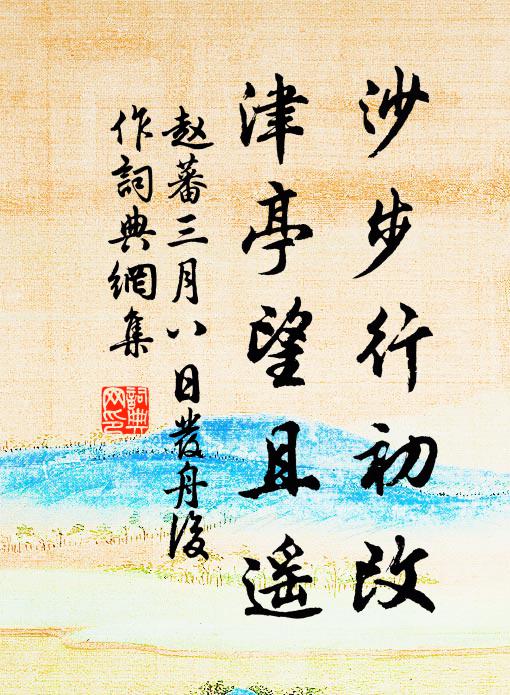 沙步行初改
津亭望且遥
赵蕃三月八日发舟後
作詞典網集
詞典
网印